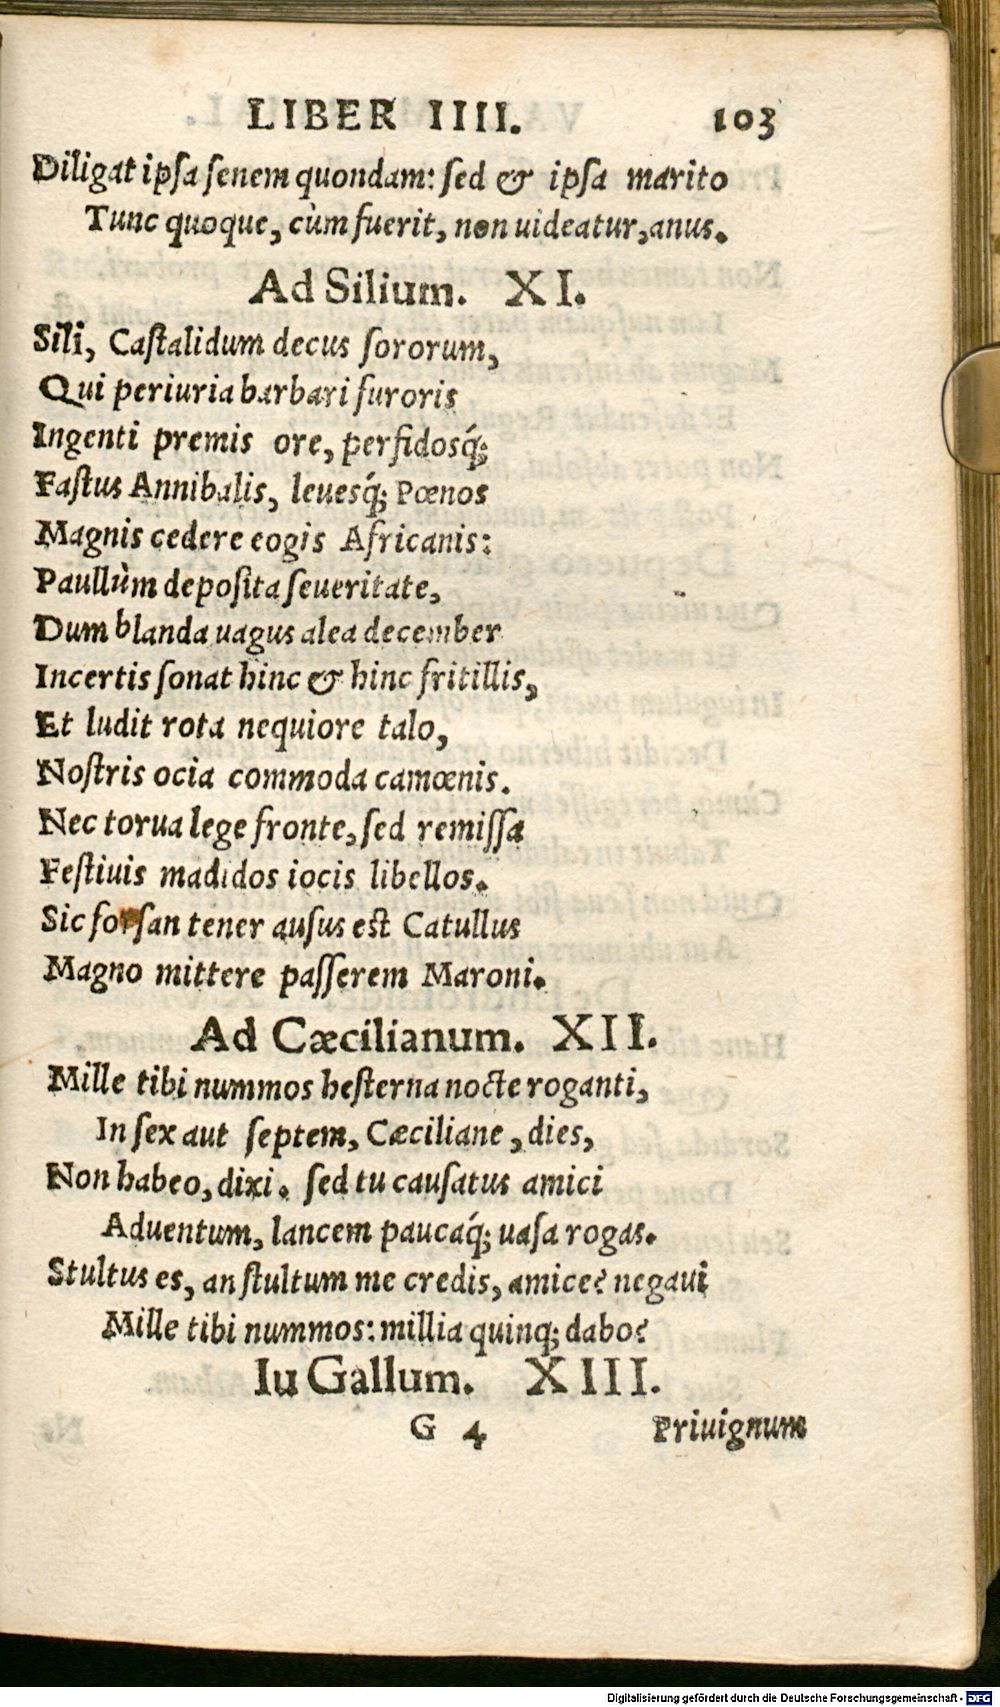 LIBER IIII. 103
Diligat ipsa senem quondam: sed & ipsa marito
Tunc quoque, cùm fuerit, non uideatur, anus.
Ad Silium. XI.
Sili, Castalidum decus sororum,
Qui periuria barbari furoris
Ingenti premis ore, perfidosq́;
Fastus Annibalis, leuesq́; Pœnos
Magnis cedere cogis Africanis:
Paullùm deposita seueritate,
Dum blanda uagus alea december
Incertis sonat hinc & hinc fritillis,
Et ludit rota nequiore talo,
Nostris ocia commoda camœnis.
Nec torua lege fronte, sed remissa
Festiuis madidos iocis libellos.
Sic forsan tener ausus est Catullus
Magno mittere passerem Maroni.
Ad Cæcilianum. XII.
Mille tibi nummos hesterna nocte roganti,
In sex aut septem, Cæciliane, dies,
Non habeo, dixi. sed tu causatus amici
Aduentum, lancem paucaq́; uasa rogas.
Stultus es, an stultum me credis, amice? negaui
Mille tibi nummos: millia quinq; dabo?
Iu Gallum. XIII.
G 4 Priuignum
Digitalisierung gefördert durch die Deutsche Forschungsgemeinschaft - DFG